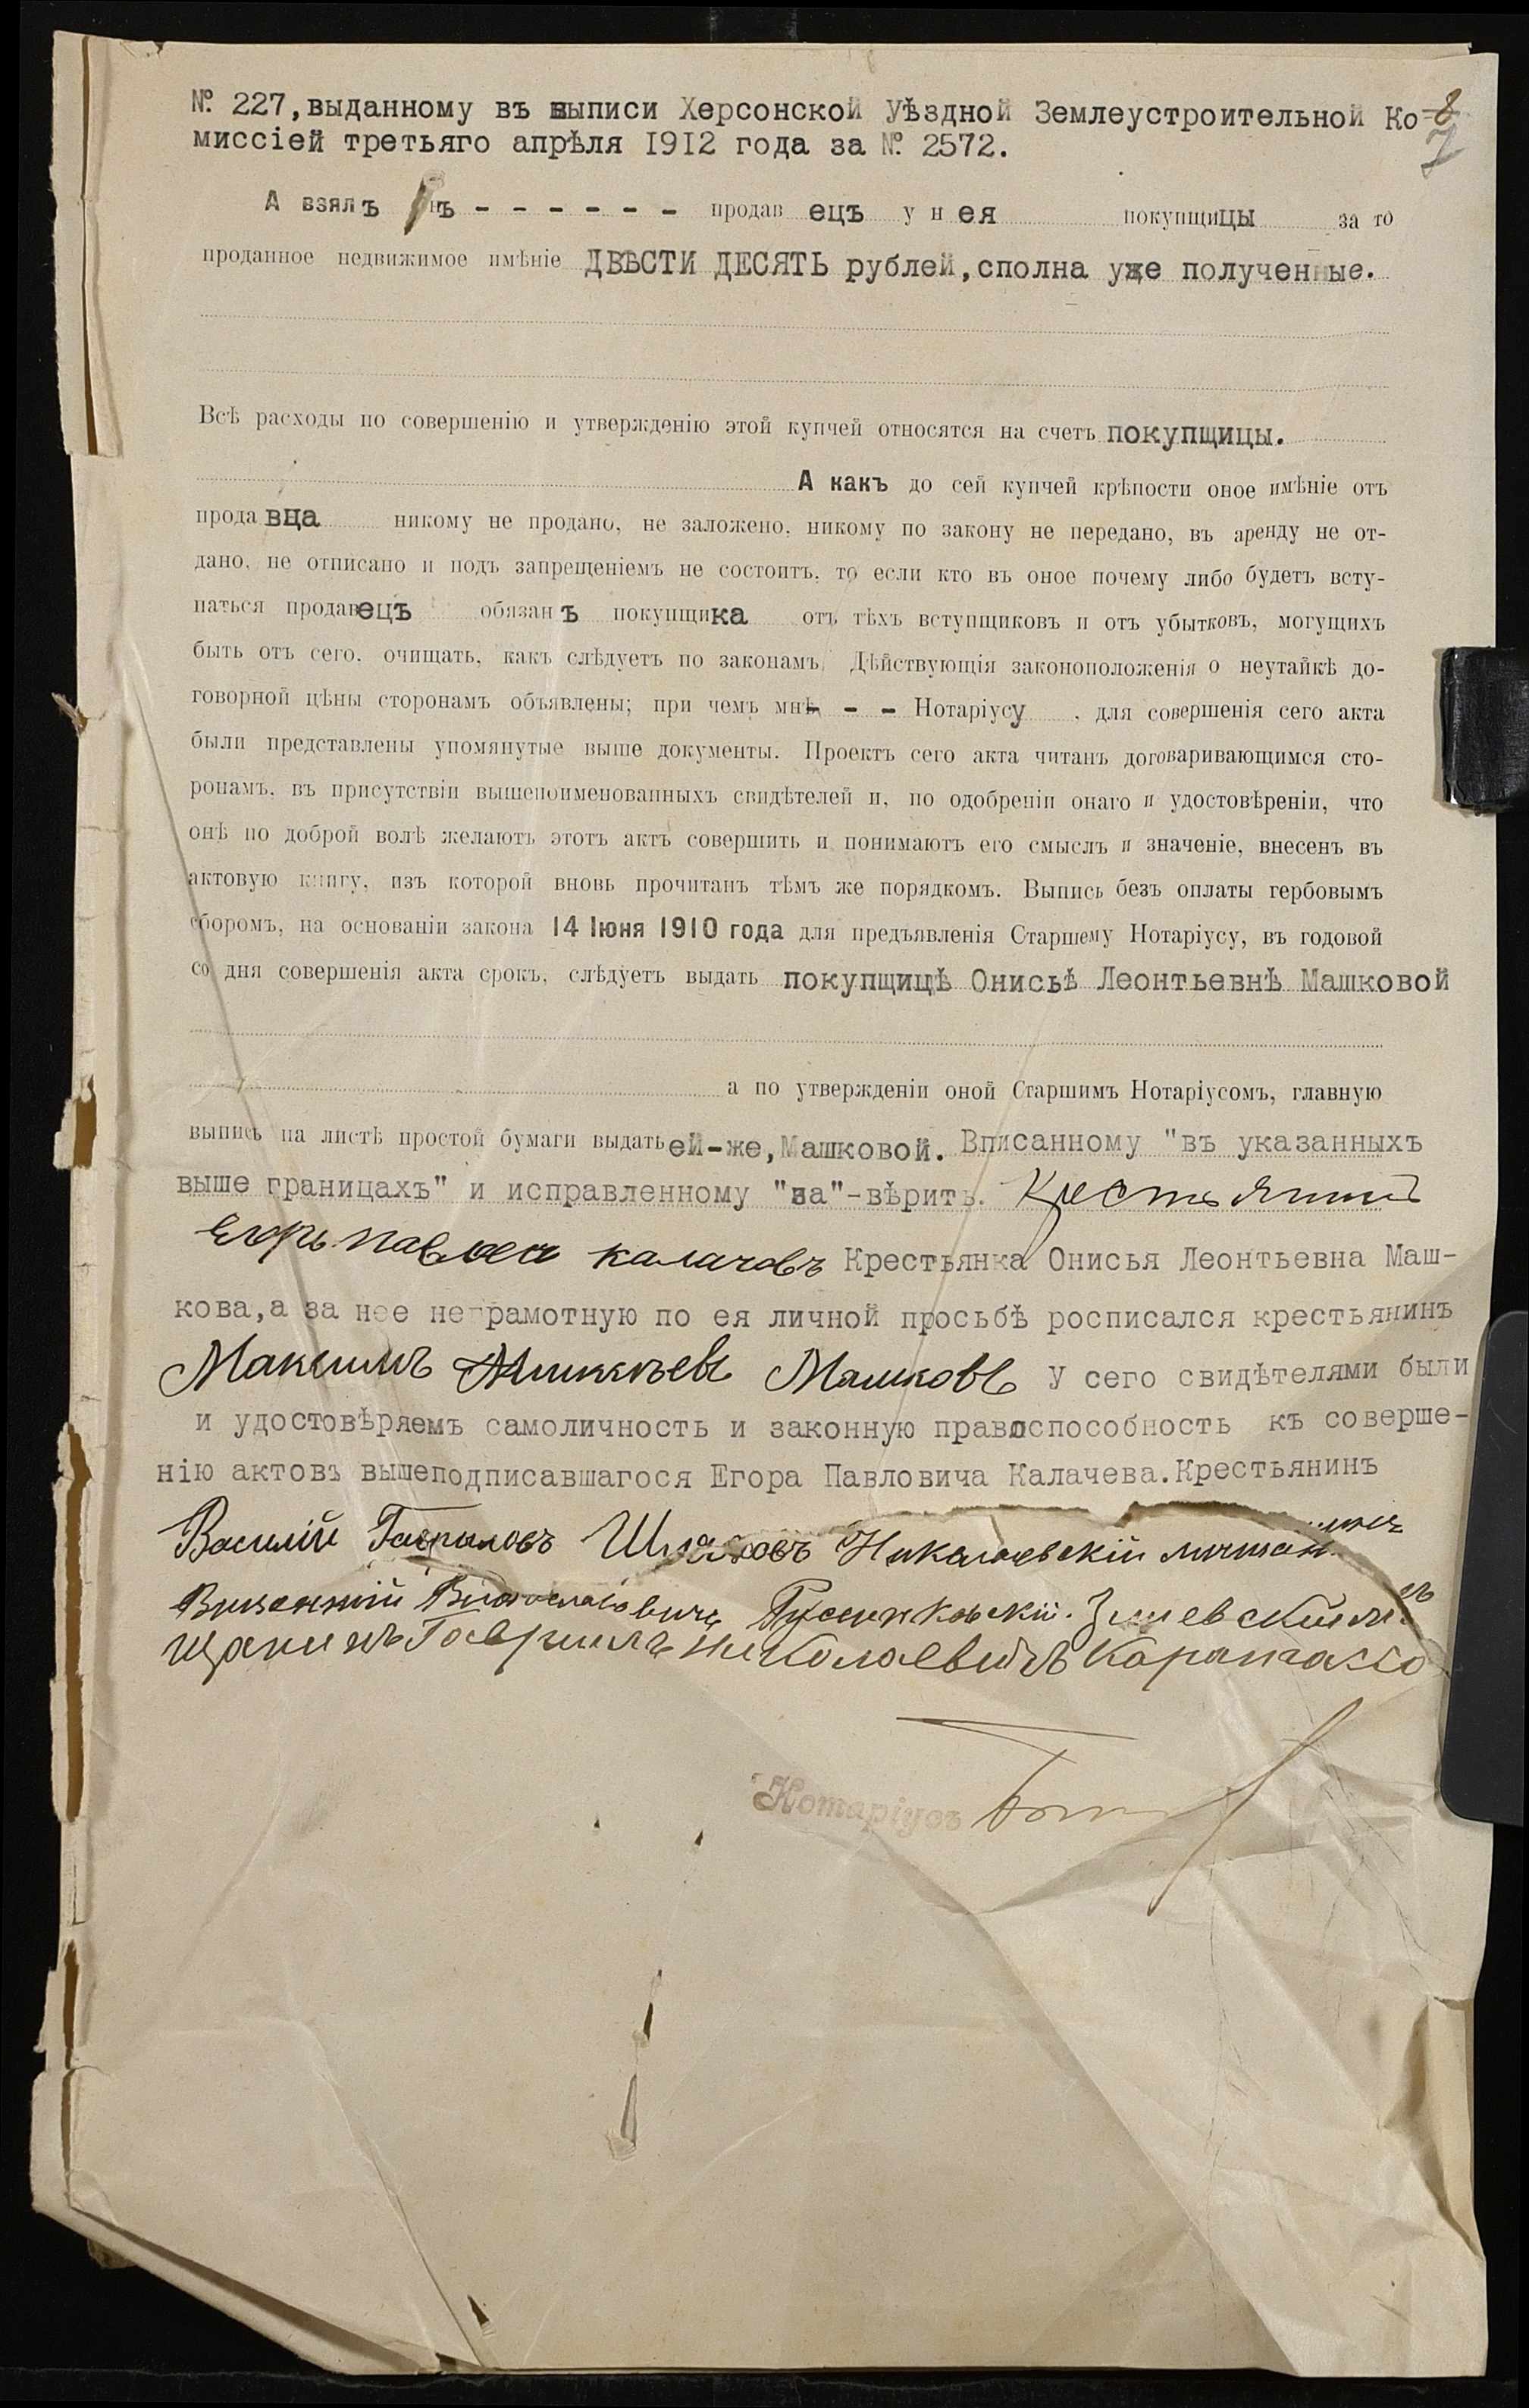 8
7
№ 227, выданному въ выписи Херсонской Уѣздной Землеустроительной Ко-
миссіей третьяго апрѣля 1912 года за № 2572.
А взялъ нъ - - - - - - продавецъ у нея покупщицы за то
проданное недвижимое имѣніе ДВѢСТИ ДЕСЯТЬ рублей, сполна уже полученные.
Всѣ расходы по совершенію и утвержденію этой купчей относятся на счетъ покупщицы.
А какъ до сей купчей крѣпости оное имѣніе отъ
продавца никому не продано, не заложено, никому по закону не передано, въ аренду не от-
дано, не отписано и подъ запрещеніемъ не состоитъ, то если кто въ оное почему либо будетъ всту-
паться продавецъ обязанъ покупщика отъ тѣхъ вступщиковъ и отъ убытковъ, могущихъ
быть отъ сего, очищать, какъ слѣдуетъ по законамъ. Дѣйствующія законоположенія о неутайкѣ до-
говорной цѣны сторонамъ объявлены; при чемъ мнѣ - - Нотаріусу , для совершенія сего акта
были представлены упомянутые выше документы. Проектъ сего акта читанъ договаривающимся сто-
ронамъ, въ присутствіи вышепоименованныхъ свидѣтелей и, по одобреніи онаго и удостовѣреніи, что
онѣ по доброй волѣ желаютъ этотъ актъ совершить и понимаютъ его смыслъ и значеніе, внесенъ въ
актовую книгу, изъ которой вновь прочитанъ тѣмъ же порядкомъ. Выпись безъ оплаты гербовымъ
сборомъ, на основаніи закона 14 Іюня 1910 года для предъявленія Старшему Нотаріусу, въ годовой
со дня совершенія акта срокъ, слѣдуетъ выдать покупщицѣ Онисьѣ Леонтьевнѣ Машковой
а по утвержденіи оной Старшимъ Нотаріусомъ, главную
выпись на листѣ простой бумаги выдать ей-же, Машковой. Вписанному "въ указанныхъ
выше границахъ" и исправленному "за"-вѣрить. Крестьянинъ
Егоръ Павловъ Калачовъ Крестьянка Онисья Леонтьевна Маш-
кова, а за нее неграмотную по ея личной просьбѣ росписался крестьянинъ
Максимъ Машковъ У сего свидѣтелями были
и удостовѣряемъ самоличность и законную правоспособность къ соверше-
нію актовъ вышеподписавшагося Егора Павловича Калачева. Крестьянинъ
Василій Гавриловъ Николаевскій мѣщанинъ
Змiевскій мѣ
щанинъ Гавріилъ Николаевичъ
Нотаріусъ